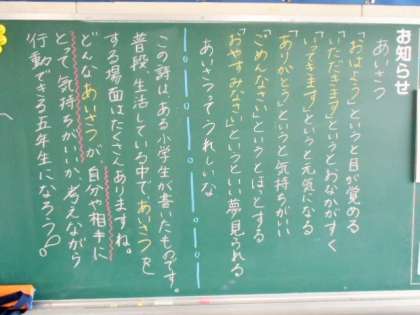 お知らせ
あいさつ
「おはよう」というと目が覚める
「いただきます」というとおなかがすく
「いってきます」というと元気になる
「ありがとう」というと気持ちがいい
「ごめんなさい」というとほっとする
「おやすみなさい」というといい夢見られる
あいさつってうれしいな
この詩はある小学生が書いたものです。
普段、生活している中であいさつを
する場面はたくさんありますね。
どんなあいさつが、自分や相手に
とって気持ちがいいか、考えながら
行動できる五年生になろう。